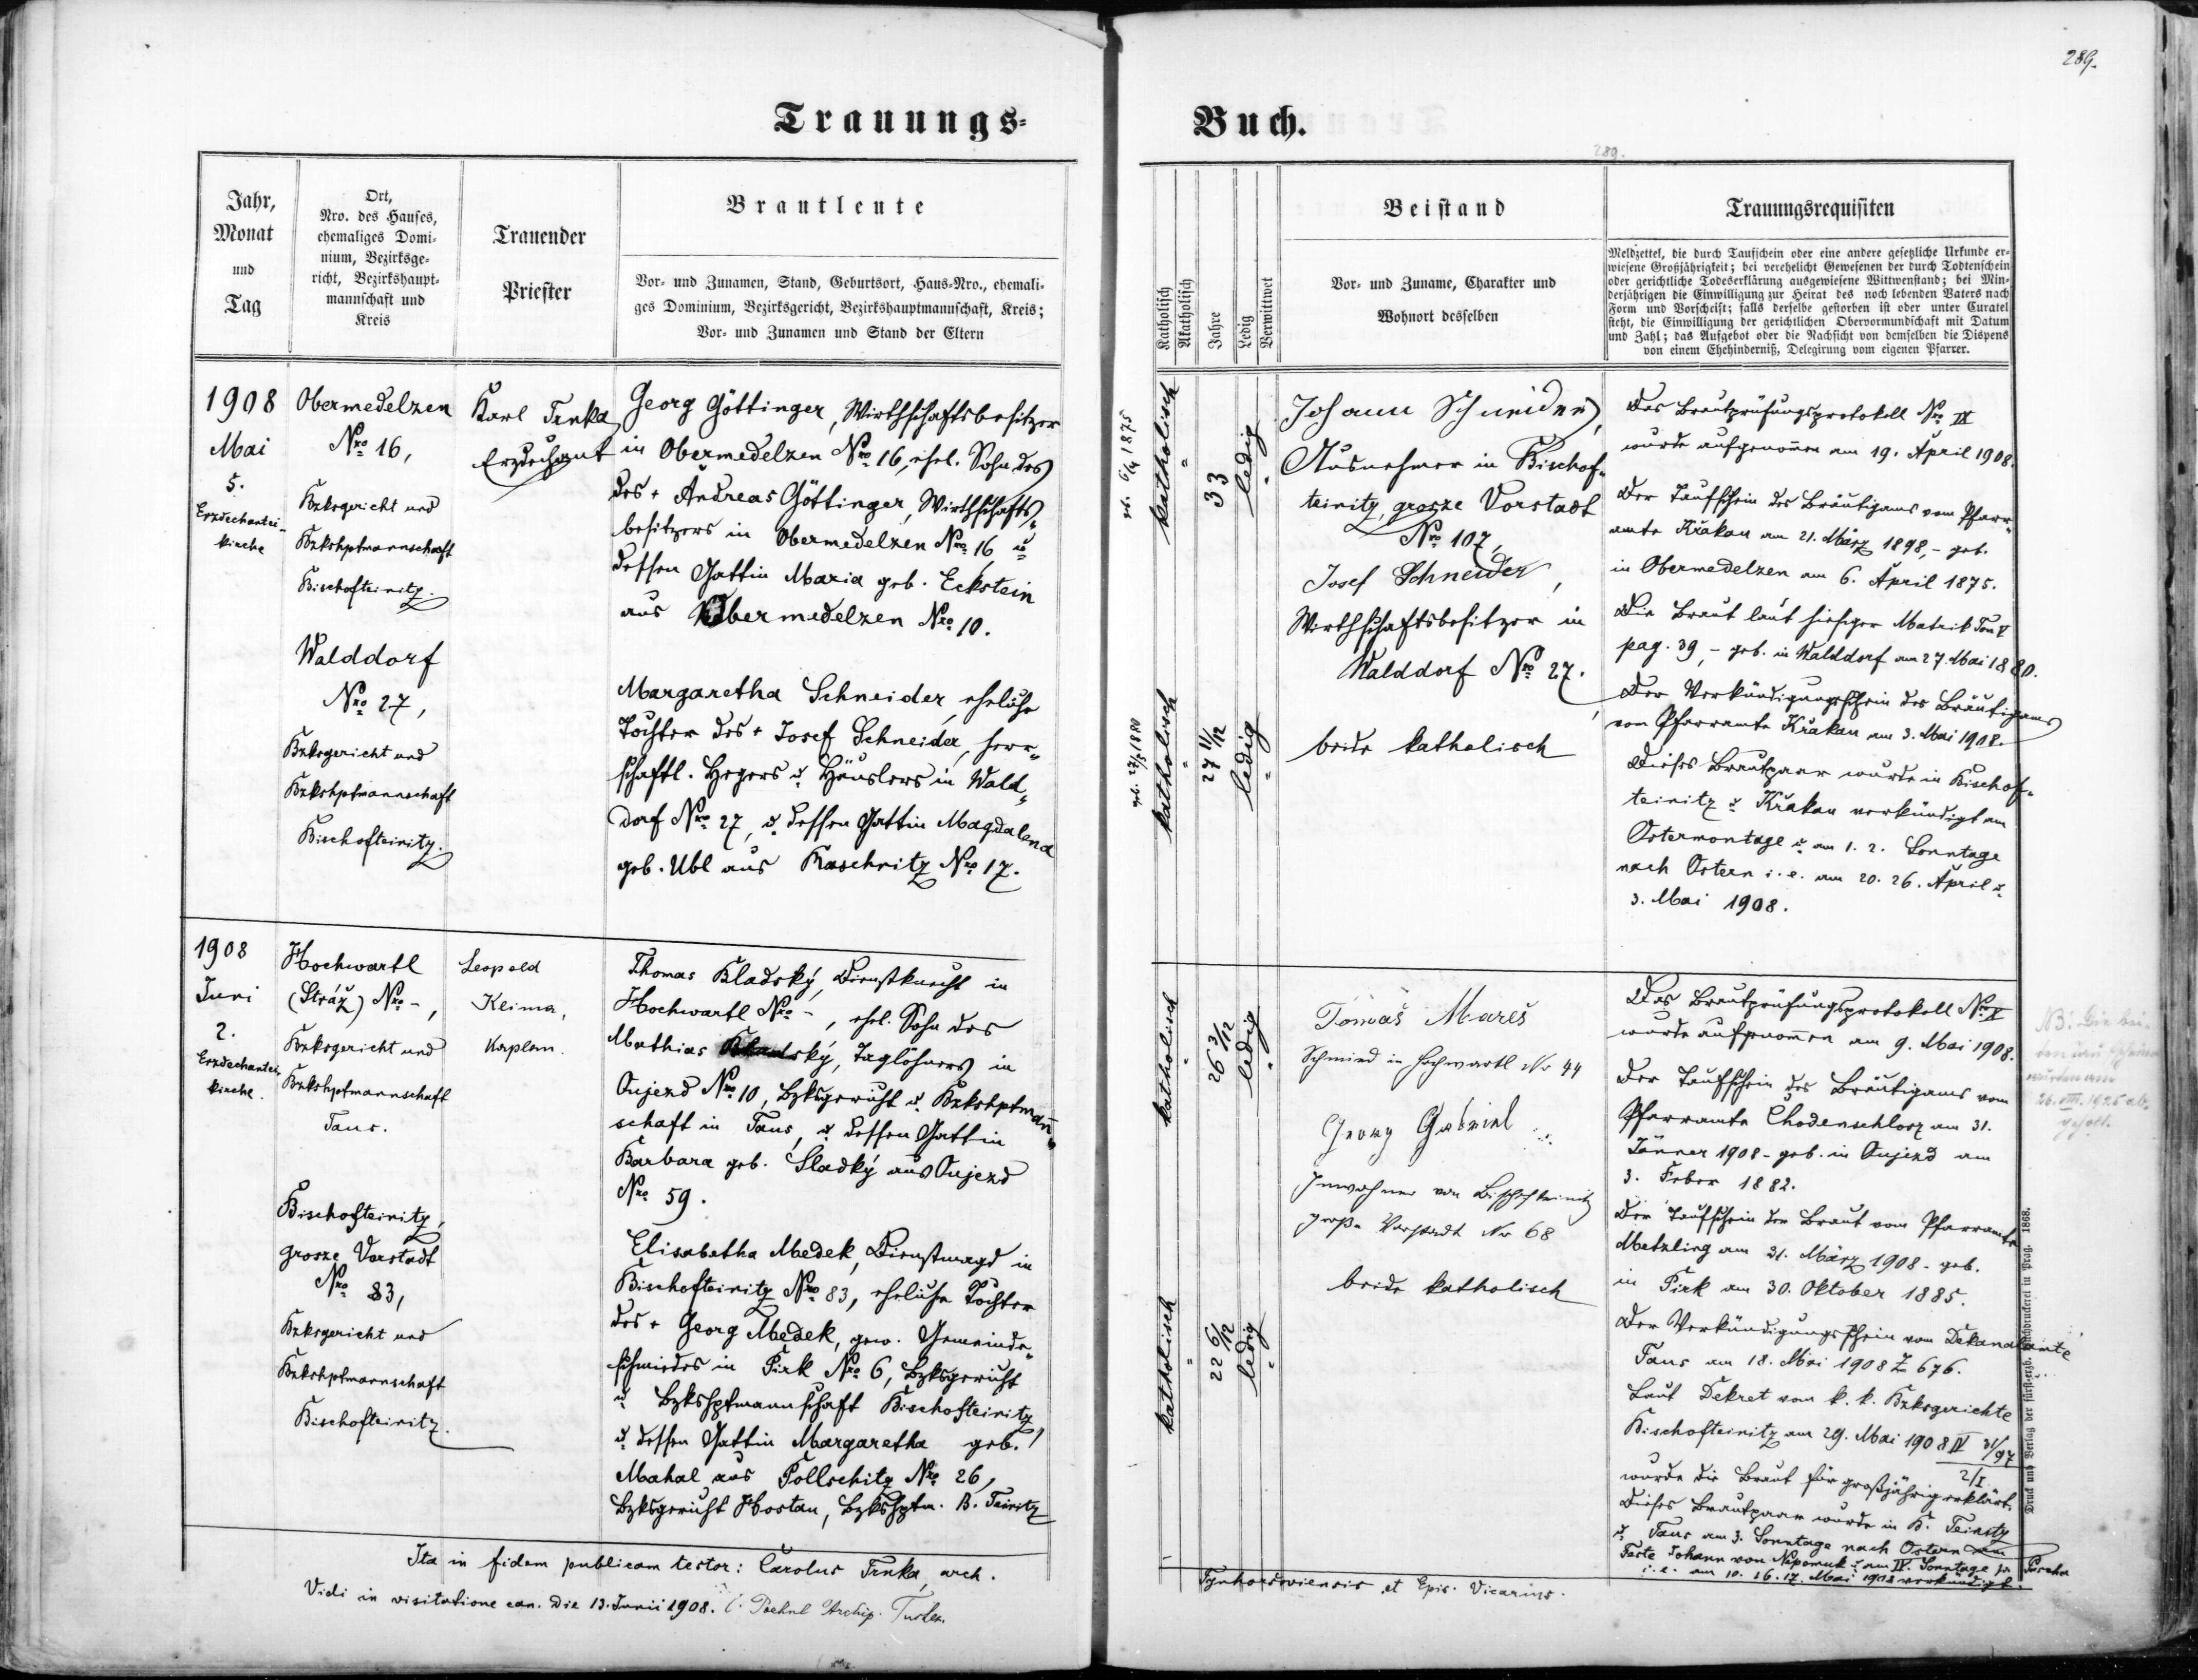 289.
Trauungs-
Buch.
289.
Jahr,
Monat
und
Tag
Ort,
Nro. des Hauses,
ehemaliges Domi-
nium, Bezirksge-
richt, Bezirkshaupt-
mannschaft und
Kreis
Trauender
Priester
Brautleute
Vor- und Zunamen, Stand, Geburtsort, Haus-Nro., ehemali-
ges Dominium, Bezirksgericht, Bezirkshauptmannschaft, Kreis;
Vor- und Zunamen und Stand der Eltern
Katholisch
Akatholisch
Jahre
Ledig
Verwittwet
Beistand
Vor- und Zuname, Charakter und
Wohnort desselben
Trauungsrequisiten
Meldzettel, die durch Taufschein oder eine andere gesetzliche Urkunde er-
wiesene Großjährigkeit; bei verehelicht Gewesenen der durch Todtenschein
oder gerichtliche Todeserklärung ausgewiesene Wittwenstand; bei Min-
derjährigen die Einwilligung zur Heirat des noch lebenden Vaters nach
Form und Vorschrift; falls derselbe gestorben ist oder unter Curatel
steht, die Einwilligung der gerichtlichen Obervormundschaft mit Datum
und Zahl; das Aufgebot oder die Nachsicht von demselben die Dispens
von einem Ehehinderniß, Delegirung vom eigenen Pfarrer.
1908
Mai
5.
Erzdechantei-
kirche
Obermedelzen
Nro 16,
Bzksgericht und
Bzkshptmannschaft
Bischofteinitz.
Walddorf
Nro 27,
Bzksgericht und
Bzkshptmannschaft
Bischofteinitz.
Karl Trnka
Erzdechant
Georg Göttinger, Wirthschaftsbesitzer
in Obermedelzen Nro 16, ehel. Sohn des
des + Andreas Göttinger, Wirthschafts-
besitzers in Obermedelzen Nro 16 u.
dessen Gattin Maria geb. Eckstein
aus Obermedelzen Nro 10.
Margaretha Schneider, eheliche
Tochter des + Josef Schneider, herr-
schaftl. Hegers u. Häuslers in Wald-
dorf Nro 27, u. dessen Gattin Magdalena
geb. Ubl aus Raschnitz Nro 17.
geb. 6/4 1875
katholisch
33
ledig
geb. 27/5 1880
katholisch
27 11/12
ledig
Johann Schneider,
Ausnehmer in Bischof-
teinitz, grosze Vorstadt
Nro 107,
Josef Schneider,
Wirthschaftsbesitzer in
Walddorf Nro 27.
beide katholisch
Das Brautprüfungsprotokoll Nro IX
wurde aufgenommen am 19. April 1908.
Der Taufschein des Bräutigams vom Pfarr-
amte Křakau am 21. März 1898, - geb.
in Obermedelzen am 6. April 1875.
Die Braut laut hiesiger Matrik Tom V
pag. 39, - geb. in Walddorf am 27. Mai 1880.
Der Verkündigungsschein des Bräutigams
vom Pfarramte Křakau am 3. Mai 1908.
Dieses Brautpaar wurde in Bischof-
teinitz u. Křakau verkündigt am
Ostermontage u. am 1. 2. Sonntage
nach Ostern i. e. am 20. 26. April u.
3. Mai 1908.
1908
Juni
2.
Erzdechantei-
kirche.
Hochwartl
(Stráž) Nro -,
Bzksgericht und
Bzkshptmannschaft
Taus.
Bischofteinitz,
grosze Vorstadt
Nro 83,
Bzksgericht und
Bzkshptmannschaft
Bischofteinitz.
Leopold
Kleima,
Kaplan.
Thomas Kladský, Dienstknecht in
Hochwartl Nro -, ehel. Sohn des
Mathias Kladský, Taglöhners in
Oujezd Nro 10, Bzksgericht u. Bzkshptmann-
schaft in Taus, u. dessen Gattin
Barbara geb. Sladký aus Oujezd
Nro 59.
Elisabetha Medek, Dienstmagd in
Bischofteinitz Nro 83, eheliche Tochter
des + Georg Medek, gew. Gemeinde-
schmiedes in Pirk Nro 6, Bzksgericht
u. Bzkshptmannschaft Bischofteinitz
u. dessen Gattin Margaretha geb.
Mahal aus Pollschitz Nro 26,
Bzksgericht Hostau, Bzkshptm. B. Teinitz
katholisch
26 3/12
ledig
katholisch
22 6/12
ledig
Tomáš Mareš
Schmied in Hochwartl Nr 44
Georg Gabriel
Inwohner von Bischofteinitz
große Vorstadt Nr 68
beide katholisch
Das Brautprüfungsprotokoll Nro X
wurde aufgenommen am 9. Mai 1908.
Der Taufschein des Bräutigams vom
Pfarramte Chodenschlosz am 31.
Jänner 1908 - geb. in Oujezd am
3. Feber 1882.
Der Taufschein der Braut vom Pfarramte
Metzling am 31. März 1908 - geb.
in Pirk am 30. Oktober 1885.
Der Verkündigungsschein vom Dekanalamte
Taus am 18. Mai 1908 Z 676.
Laut Dekret vom k. k. Bzksgerichte
Bischofteinitz am 29. Mai 1908 IV 31/97
2/I
wurde die Braut für großjährig erklärt.
Dieses Brautpaar wurde in B. Teinitz
u. Taus am 3. Sonntage nach Ostern am
Feste Johann von Nepomuk u. am IV. Sonntage p. Pascha
i. e. am 10. 16. 17. Mai 1908 verkündigt.
26. VIII. 1925
Druck und Verlag der fürst-erzb. Buchdruckerei in Prag. 1868.
Ita in fidem publicam testor: Carolus Trnka, arch.
Tynhorsoviensis et Epis. Vicarius.
Vidi in visitatione can. die 13. Junii 1908.